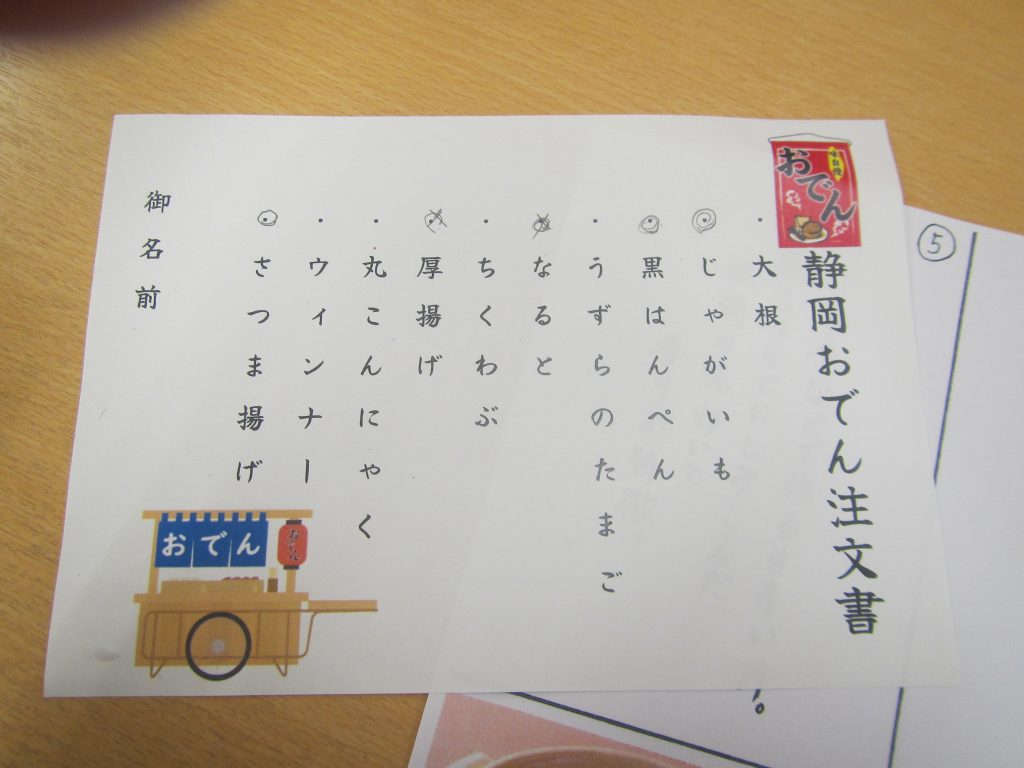 味自慢
おでん
静岡おでん注文書
・大根
・じゃがいも
・黒はんぺん
・うずらのたまご
・なると
・ちくわぶ
・厚揚げ
・丸こんにゃく
・ウィンナー
・さつま揚げ
御名前
おでん
おでん
⑤